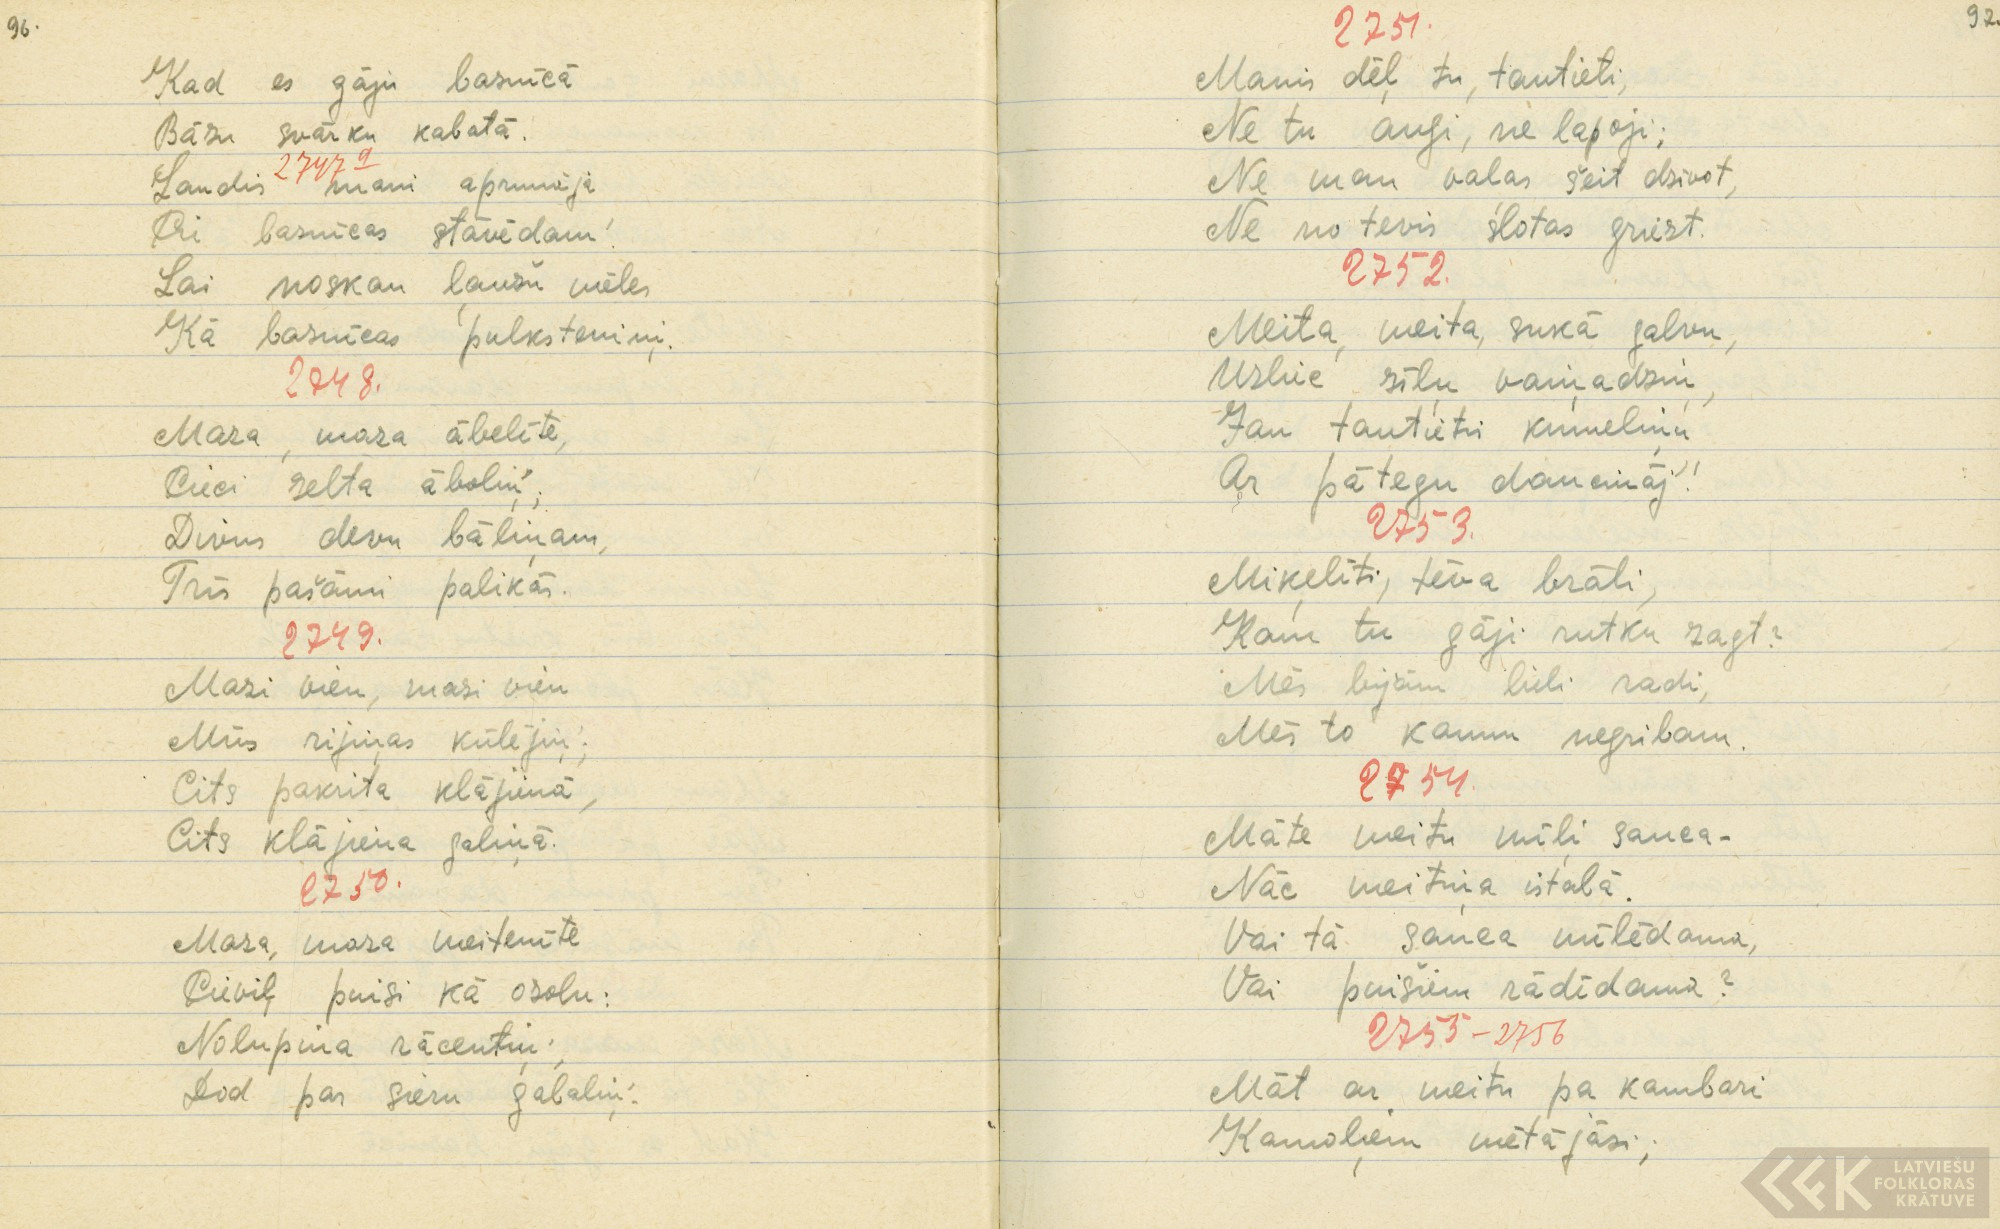 96.
Kad es gāju basnīcā
Bāzu svārku kabatā.
2747a
Laudis mani aprunāja
Pi basnīcas stāvēdam'.
Lai noskan ļaužu mēles
Kā basnīcas pulksteniņi.
2748.
Maza, maza ābelīte,
Pieci zelta āboliņ';
Divus devu bāliņam,
Trīs pašāmi palikās.
2749.
Mazi vien, mazi vien
Mūs rijiņas kūlējiņ';
Cits pakrita klājienā,
Cits klājiena galiņā.
2750.
Maza, maza meitenīte
Pieviļ puisi kā ozolu:
Nolupina rācentiņ',
Dod par sieru gabaliņ'.
97.
2751.
Manis dēļ tu, tautieti,
Ne tu augi, ne lapoji;
Ne man vaļas šeit dzivot,
Ne no tevis slotas griezt.
2752.
Meita, meita, sukā galvu,
Uzliec zīļu vaiņadziņ,
Jau tautietis kumeliņu
Ar pātegu dancināj'!
2753.
Miķelīti, tēva brāli,
Kam tu gāji rutku zagt?
Mēs bijām lieli radi,
Mēs to kaunu negribam.
2754.
Māte meitu mīļi sauca-
Nāc meitiņa istabā.
Vai tā sauca mīlēdama,
Vai puišiem rādīdama?
2755-2756
Māt ar meitu pa kambari
Kamoļiem mētājāsi;
LATVIEŠU
FOLKLORAS
KRĀTUVE